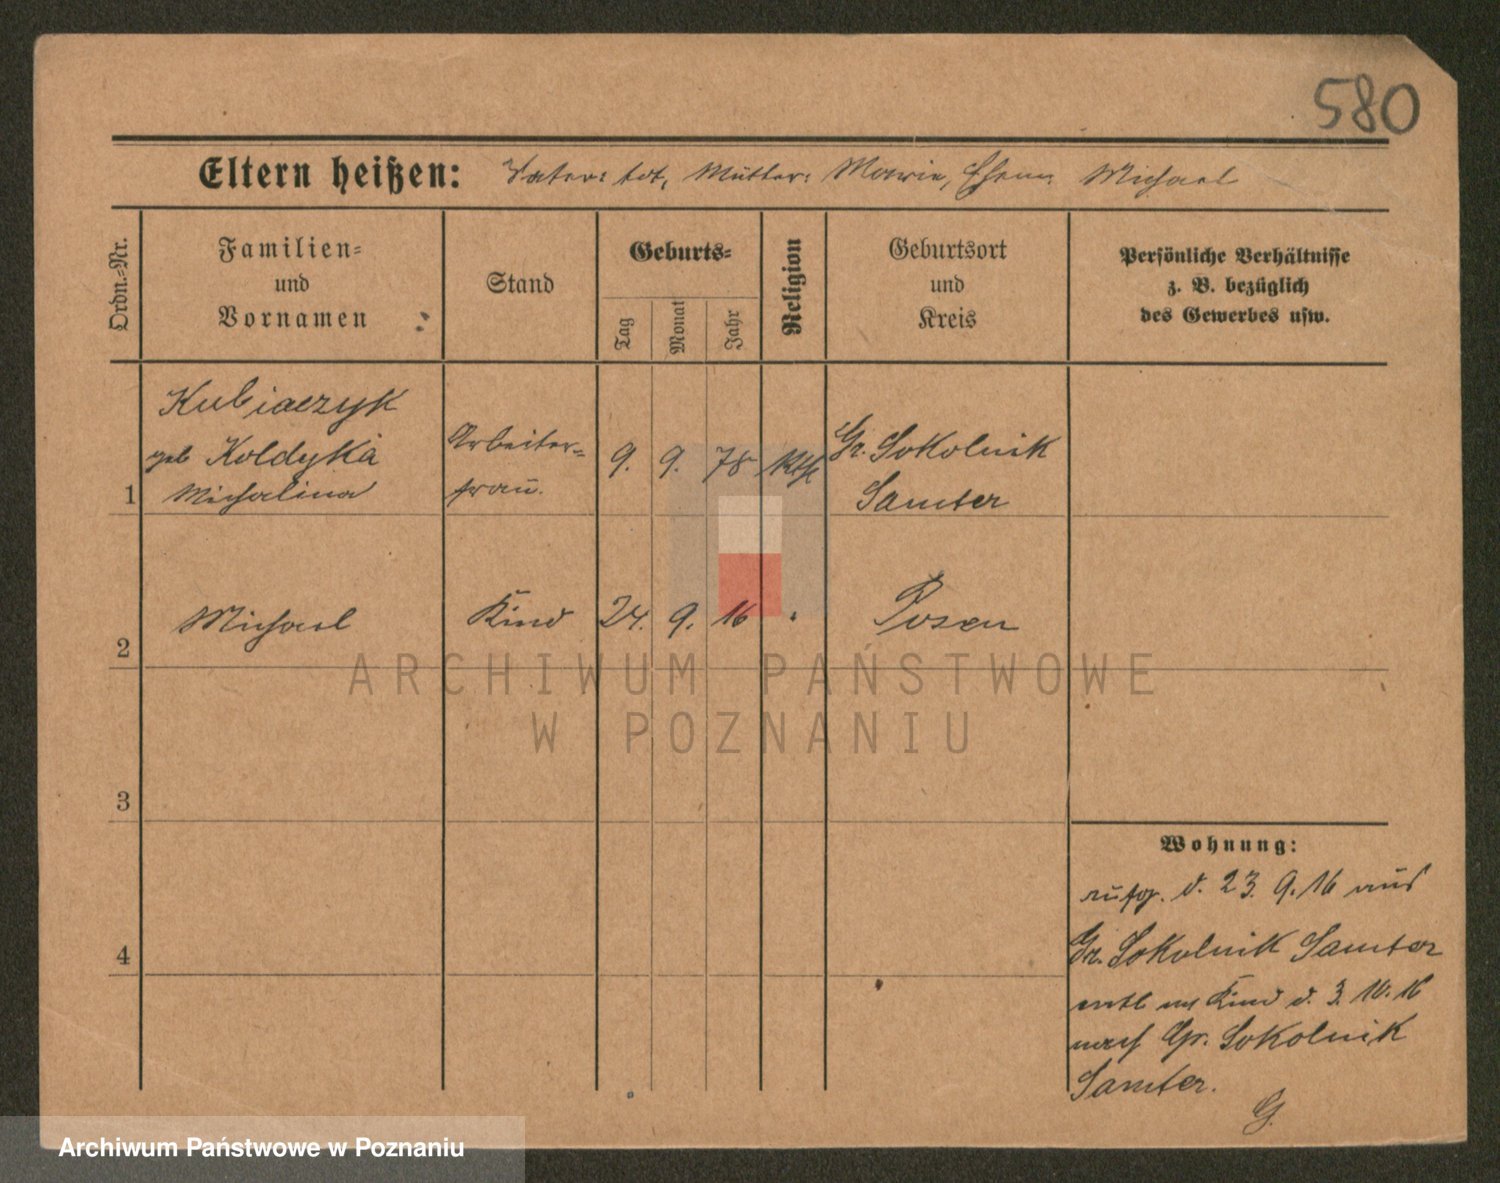 580
Eltern heißen: Vater: tot, Mutter: Marie, Ehem: Michael
Ordn.-Nr.
Familien- und Vornamen
Stand
Geburts-
Tag
Monat
Jahr
Religion
Geburtsort und Kreis
Persönliche Verhältnisse z. B. bezüglich des Gewerbes usw.
1
Kubiaczyk
geb Koldyka
Michalina
Arbeiter-
frau.
9. 9. 78 kth
Gr. Sokolnik
Samter
2
Michael
Kind
24. 9. 16
Posen
3
4
Wohnung:
aufg. d. 23. 9. 16 aus
Gr. Sokolnik Samter
entl m Kind d. 3. 10. 16
nach Gr. Sokolnik
Samter.
G.
ARCHIWUM PAŃSTWOWE
W POZNANIU
Archiwum Państwowe w Poznaniu